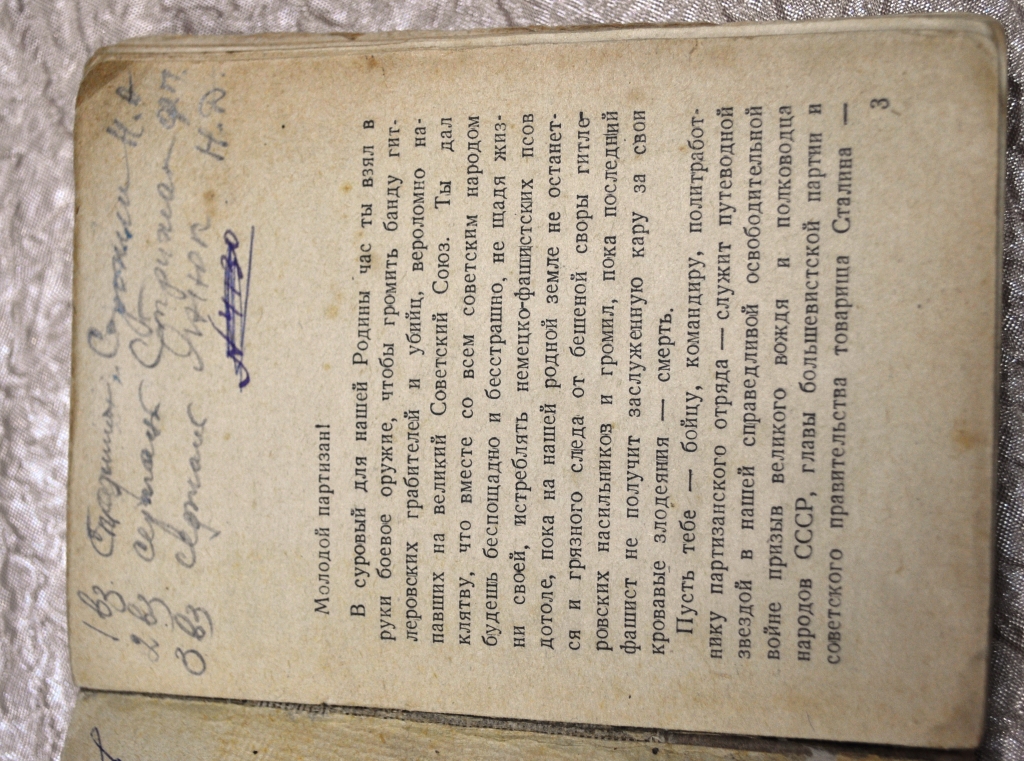 1 вз.
2 вз. сержант
3 вз сержант Н. Д.
№ 4130
Молодой партизан!
В суровый для нашей Родины час ты взял в
руки боевое оружие, чтобы громить банду гит-
леровских грабителей и убийц, вероломно на-
павших на великий Советский Союз. Ты дал
клятву, что вместе со всем советским народом
будешь беспощадно и бесстрашно, не щадя жиз-
ни своей, истреблять немецко-фашистских псов
дотоле, пока на нашей родной земле не останет-
ся и грязного следа от бешеной своры гитле-
ровских насильников и громил, пока последний
фашист не получит заслуженную кару за свои
кровавые злодеяния — смерть.
Пусть тебе — бойцу, командиру, политработ-
нику партизанского отряда — служит путеводной
звездой в нашей справедливой освободительной
войне призыв великого вождя и полководца
народов СССР, главы большевистской партии и
советского правительства товарища Сталина —
3